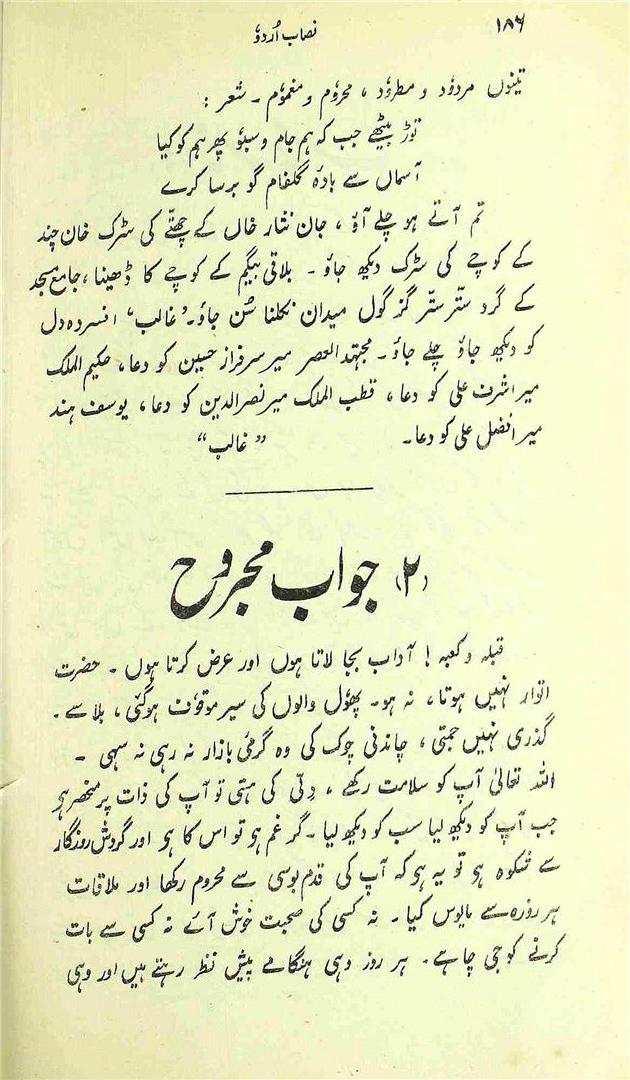 ۱۸۶
نصاب اُردوٗ
تینوں مردوٗد و مطروٗد ، محروٗم و مغموٗم ۔ شعر :
توڑ بیٹھے جب کہ ہم جام و سبوٗ پھر ہم کو کیا
آسماں سے بادۂ گلفام گو برسا کرے
تم آتے ہو چلے آؤ ، جان نثار خاں کے چھتّے کی سڑک خان چند
کے کوچے کی سڑک دیکھ جاؤ ۔ بلاقی بیگم کے کوچے کا ڈھینا ، جامع مسجد
کے گرد ستّر ستّر گز گول میدان نکلنا سُن جاؤ ۔ ”غالب“ افسردہ دل
کو دیکھ جاؤ چلے جاؤ ۔ مجتہد العصر میر سرفراز حسین کو دعا ، حکیم الملک
میر اشرف علی کو دعا ، قطب الملک میر نصر الدین کو دعا ، یوسف ہند
میر افضل علی کو دعا۔ ”غالب“
(۲) جواب مجروح
قبلہ و کعبہ ! آداب بجا لاتا ہوں اور عرض کرتا ہوں ۔ حضرت
اتوار نہیں ہوتا ، نہ ہو ۔ پھوٗل والوں کی سیر موقوٗف ہوگئی ، بلا سے ۔
گذری نہیں جمتی ، چاندنی چوک کی وہ گرمیٔ بازار نہ رہی نہ سہی ۔
اللہ تعالیٰ آپ کو سلامت رکھے ، دِلّی کی ہستی تو آپ کی ذات پر منحصر ہو
جب آپ کو دیکھ لیا سب کو دیکھ لیا ۔ گر غم ہو تو اس کا ہو اور گردش روزگار
سے شکوہ ہو تو یہ ہو کہ آپ کی قدم بوسی سے محروم رکھا اور ملاقات
ہر روزہ سے مایوس کیا ۔ نہ کسی کی صحبت خوش آئے نہ کسی سے بات
کرنے کو جی چاہے ۔ ہر روز وہی ہنگامے پیش نظر رہتے ہیں اور وہی